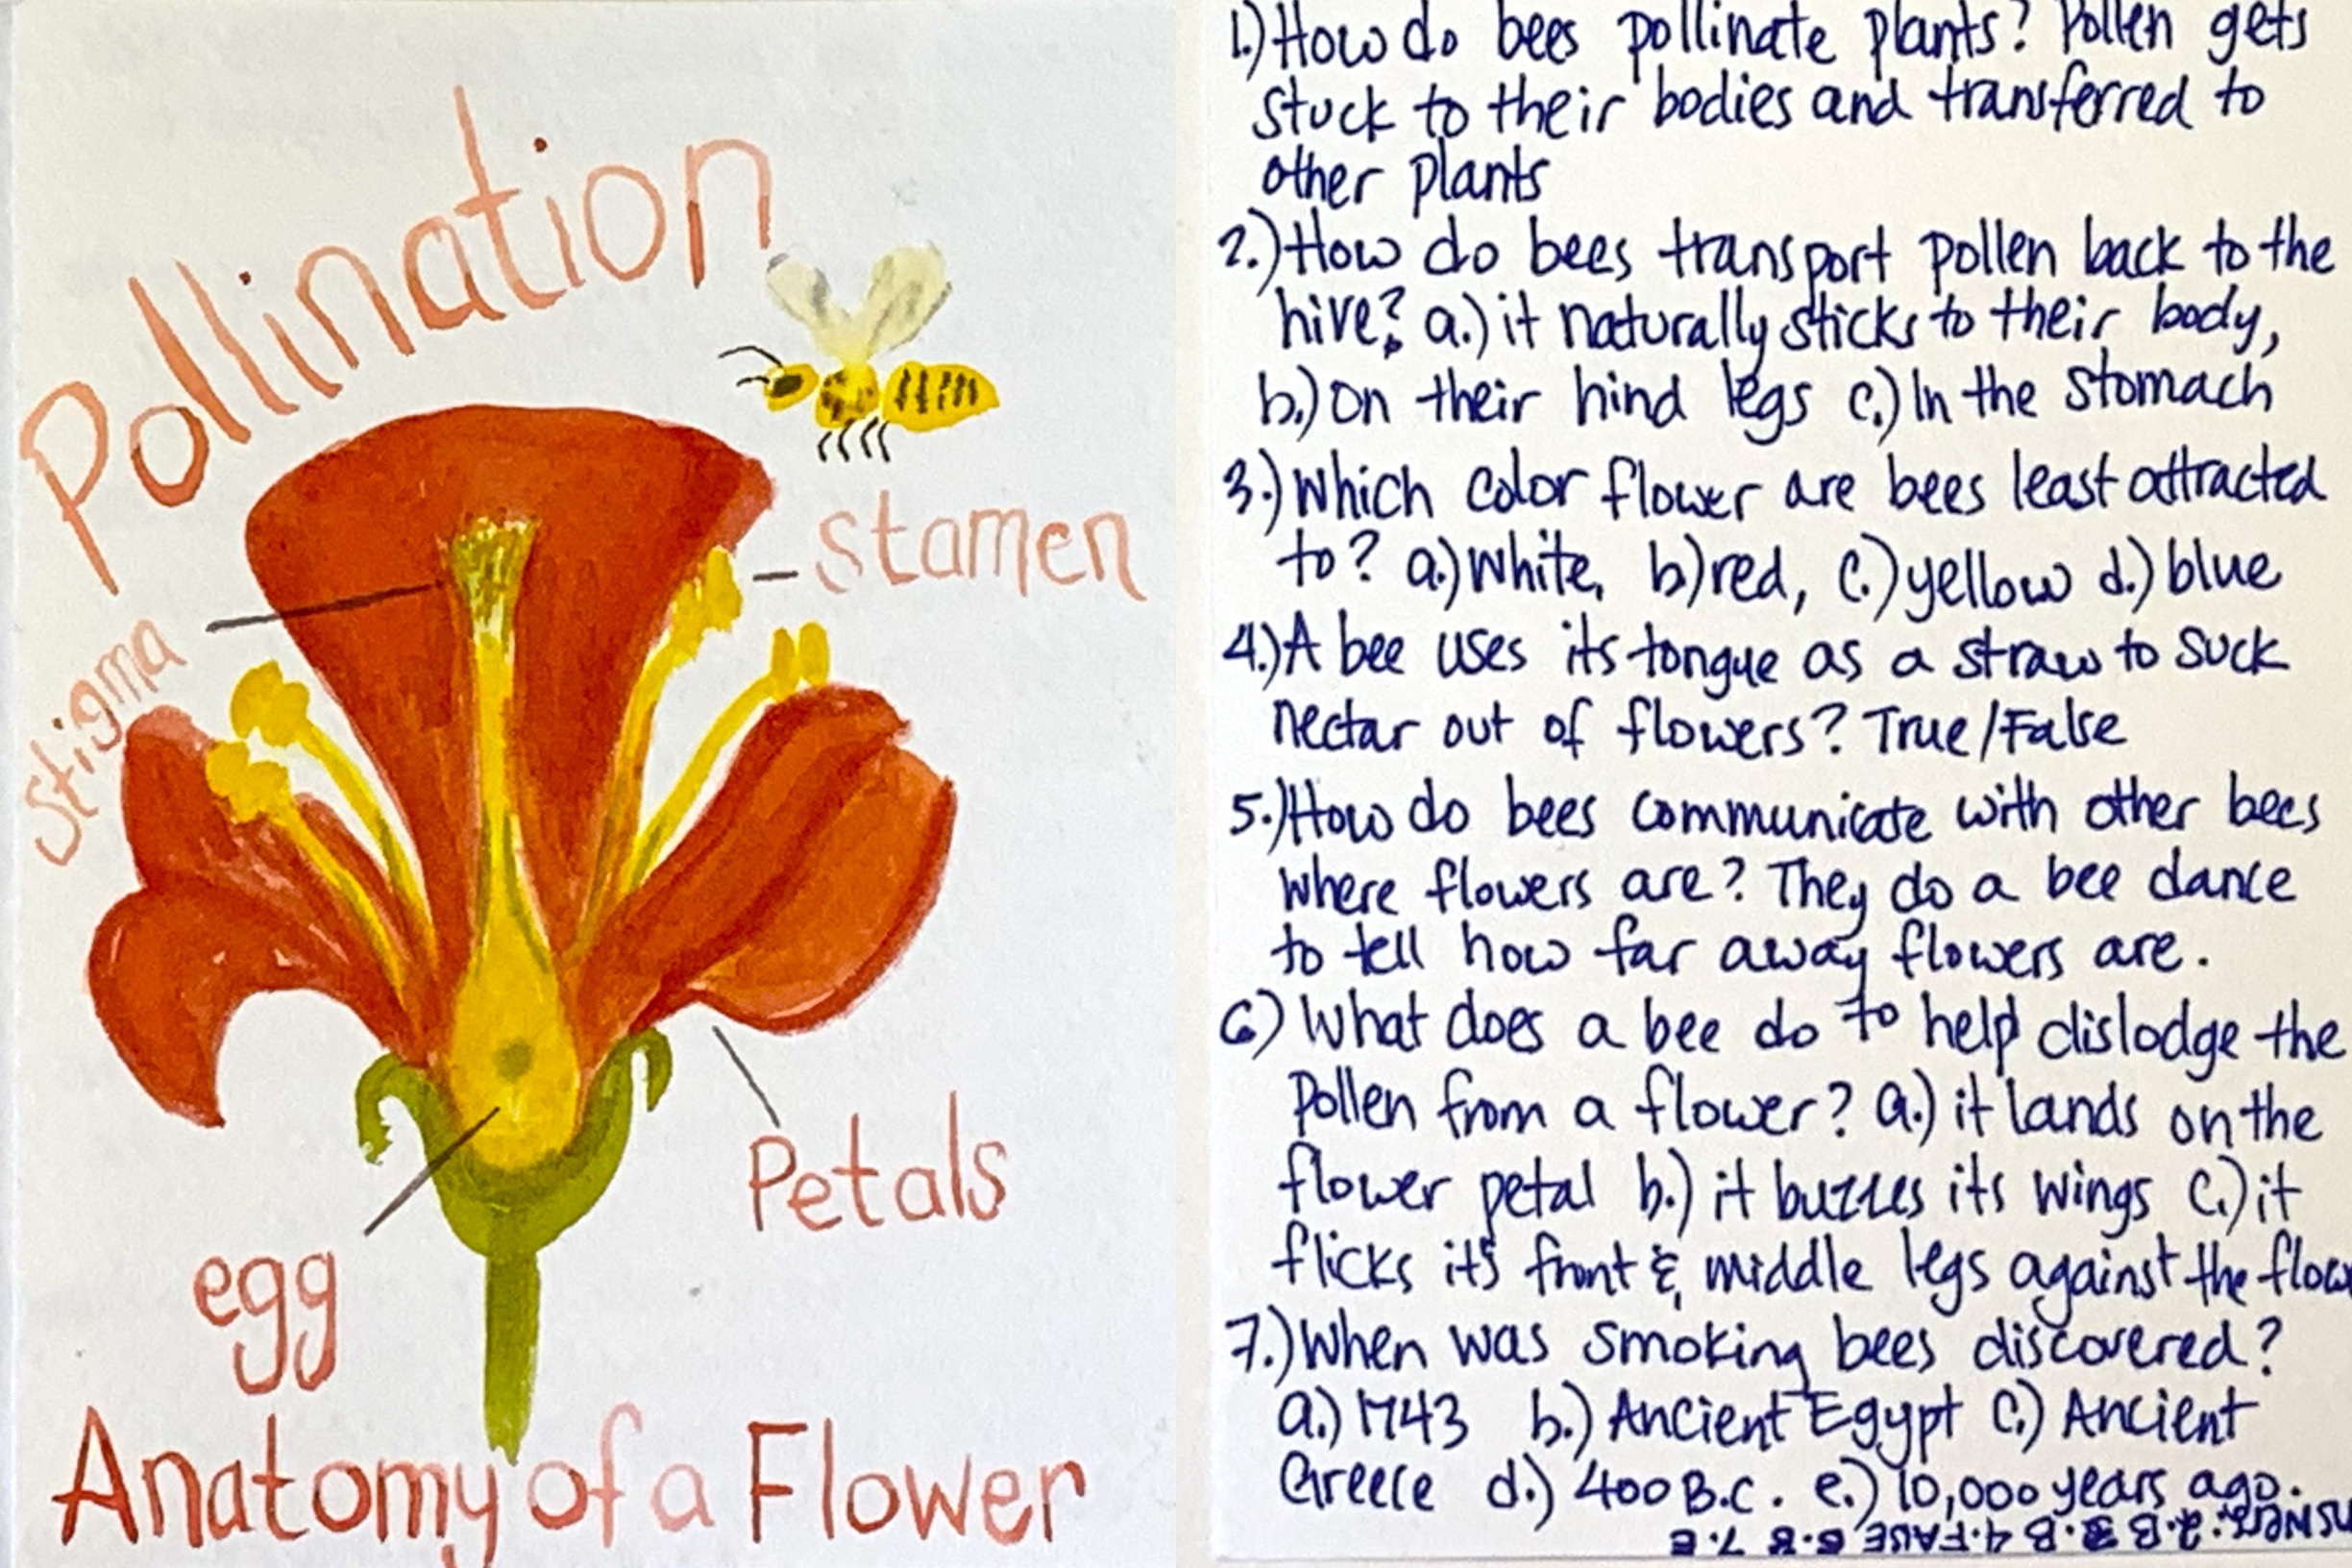 Pollination
stamen
stigma
Petals
egg
Anatomy of a Flower
1.) How do bees pollinate plants? Pollen gets
stuck to their bodies and transferred to
other plants
2.) How do bees transport pollen back to the
hive? a.) it naturally sticks to their body,
b.) on their hind legs c.) In the stomach
3.) Which color flower are bees least attracted
to? a.) white, b) red, c.) yellow d.) blue
4.) A bee uses its tongue as a straw to suck
nectar out of flowers? True/False
5.) How do bees communicate with other bees
where flowers are? They do a bee dance
to tell how far away flowers are.
6) What does a bee do to help dislodge the
pollen from a flower? a.) it lands on the
flower petal b.) it buzzes its wings c.) it
flicks it's front & middle legs against the flow
7.) When was smoking bees discovered?
a.) 1743 b.) Ancient Egypt c.) Ancient
Greece d.) 400 B.C. e.) 10,000 years ago.
Answers: 2.B 3.B 4.FALSE 6.B 7.E